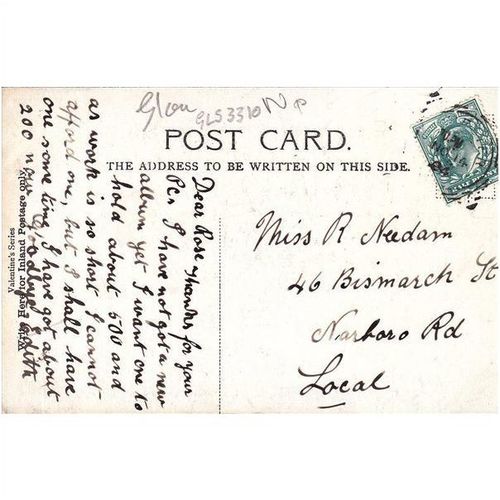 Glou
GLS3310
POST CARD.
THE ADDRESS TO BE WRITTEN ON THIS SIDE.
Valentine's Series
Write Here for Inland Postage only
Dear Rose, thanks for your
Pc. I have not got a new
album yet I want one to
hold about 500 and
as work is so short I cannot
afford one, but I shall have
one some time, I have got about
200 now Goodbye Edith
Miss R Needam
46 Bismarch St
Narboro Rd
Local